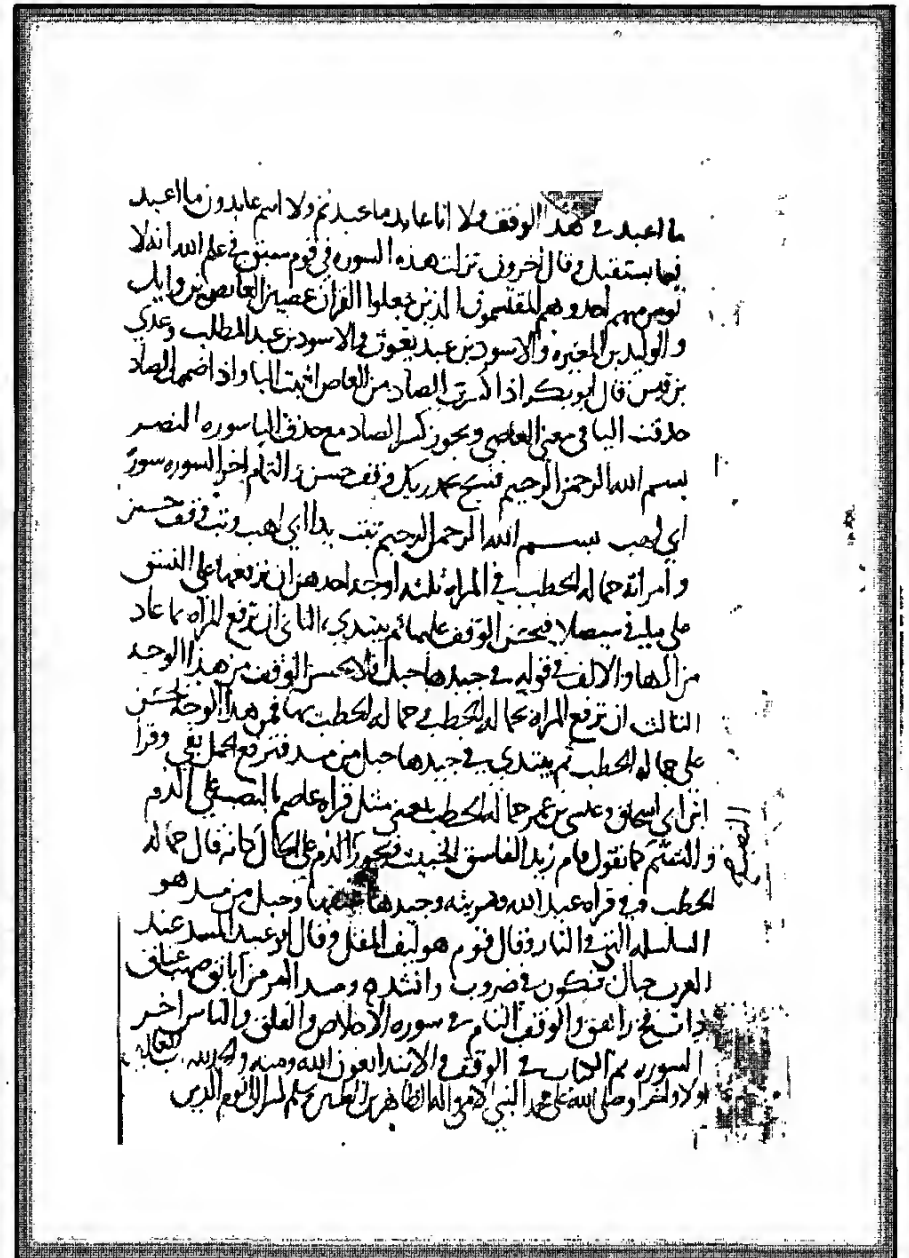 ما اعبد في هذا الوقف ولا انا عابد ما عبدتم ولا انتم عابدون ما اعبد
فيما يستقبل وقال اخرون نزلت هذه السوره في قوم سبق في علم الله انه لا
يومن منهم احد وهم المقتسمون الذين جعلوا القران عضين العاص بن وايل
والوليد بن المغيره والاسود بن عبد يغوث والاسود بن عبد المطلب وعدي
بن قيس قال ابو بكر اذا كسرت الصاد من العاص اثبت اليا واذا ضممت الصاد
حذفت اليا في معنى العاصي ويجوز كسر الصاد مع حذف اليا سوره النصر
بسم الله الرحمن الرحيم فسبح بحمد ربك وقف حسن والتمام اخر السوره سورة
ابي لهب بسم الله الرحمن الرحيم تبت يدا ابي لهب وتب وقف حسن
وامراته حماله الحطب في المراه ثلثه اوجه احدهن ان ترفعها على النسق
على ما في سيصلى فيحسن الوقف عليها ثم يبتدي الثاني ان ترفع المراه بما عاد
من الها والالف في قوله في جيدها حبل فلا يحسن الوقف من هذا الوجه
الثالث ان ترفع المراه بحماله الحطب وحماله الحطب بها فمن هذا الوجه يحسن
على حماله الحطب ثم يبتدي في جيدها حبل من مسد فترفع الحبل بفي وقرا
ابن ابي اسحاق وعيسى بن عمر حماله الحطب يعني مثل قراه عاصم بالنصب على الذم
والشتم كما تقول قام زيد الفاسق الخبيث ويجوز الذم على الحال كانه قال حماله
النصب
الحطب وفي قراه عبد الله ومريئته وجيدها عنقها وحبل من مسد هو
السلسله التي في النار وقال قوم هو ليف المقل وقال ابو عبيد المسد عند
العرب حبال تكون من ضروب وانشد ومسد امر من ايانق صهب عتاق
ذات مخ زاهق والوقف التام في سوره الاخلاص والفلق والناس اخر
السوره تم الكتاب في الوقف والابتدا بعون الله ومنه والحمد لله
اولا واخرا وصلى الله على محمد النبي الامي واله الطاهرين الدين